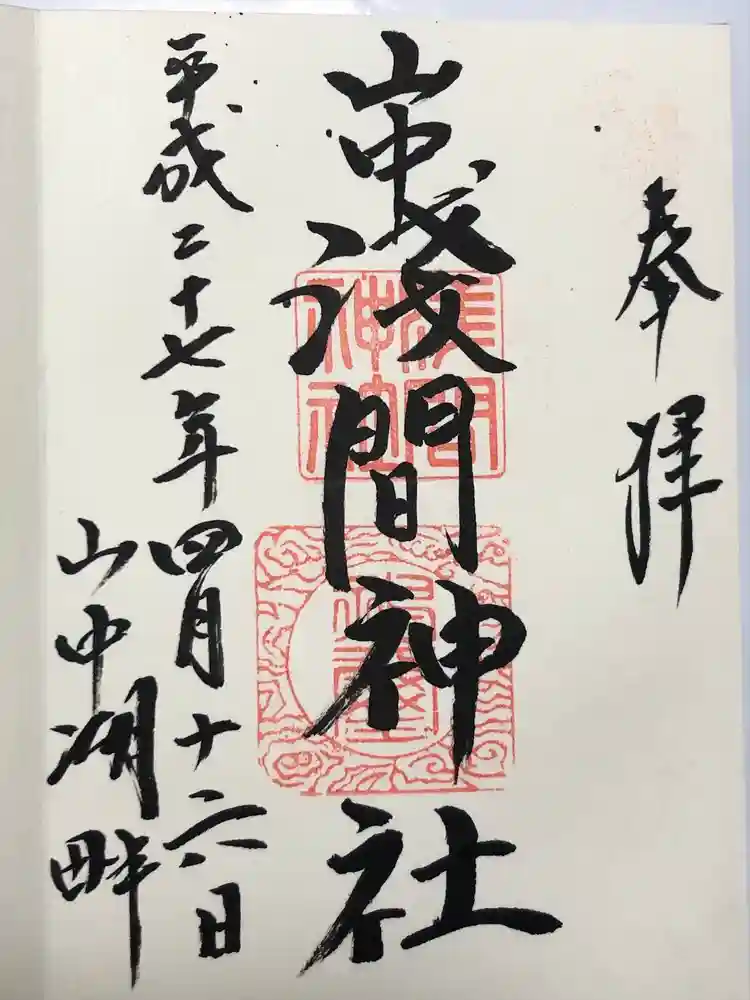 奉拝
山中淺間神社
淺間
神社
平成二十七年四月十六日
山中湖畔